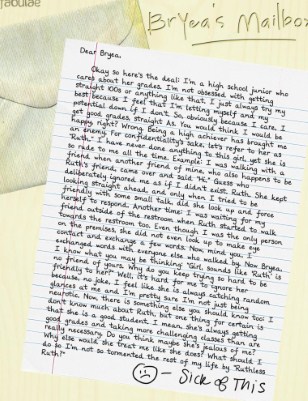 fabulae
Bryea's Mailbox
Dear Bryea,
Okay so here's the deal: I'm a high school junior who
cares about her grades. I'm not obsessed with getting
straight 100s or anything like that. I just always try my
best because I feel that I'm letting myself and my
potential down if I don't. So, obviously because I care, I
get good grades, straight As. You would think I would be
happy right? Wrong. Being a high achiever has brought me
an enemy. For confidentiality's sake, let's refer to her as
"Ruth." I have never done anything to this girl, yet she is
so rude to me all the time. Example: I was walking with a
friend when another friend of mine, who also happens to be
Ruth's friend, came over and said "Hi." Guess who
deliberately ignored me as if I didn't exist, Ruth. She kept
looking straight ahead, and only when I tried to be
friendly with some small talk, did she look up and force
herself to respond. Another time: I was waiting for my
friend outside of the restroom when Ruth started to walk
towards the restroom too. Even though I was the only person
on the premises, she did not even look up to make eye
contact and exchange a few words. Now mind you, I
exchanged words with everyone else who walked by. Now Bryea,
I know what you may be thinking: "Girl, sounds like Ruth is
no friend of yours. Why do you keep trying so hard to be
friendly to her?" Well, it's hard for me to ignore her
because, no joke, I feel like she is always catching random
glances at me and I'm pretty sure I'm not just being
neurotic. Now there is something else you should know too: I
don't know much about Ruth, but one thing for certain is
that she is a good student. I mean, she's always getting
good grades and taking more challenging classes than are
really necessary. Do you think maybe she's jealous of me?
Why else would she treat me like she does? What should I
do so I'm not so tormented the rest of my life by "Ruthless
Ruth?"
- Sick of This